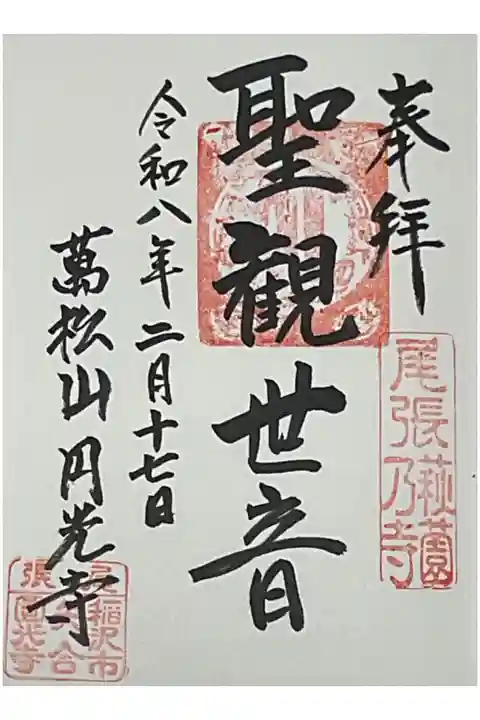 奉拝
尾張乃寺
萩園
聖観世音
令和八年二月十七日
萬松山円光寺
稲沢市